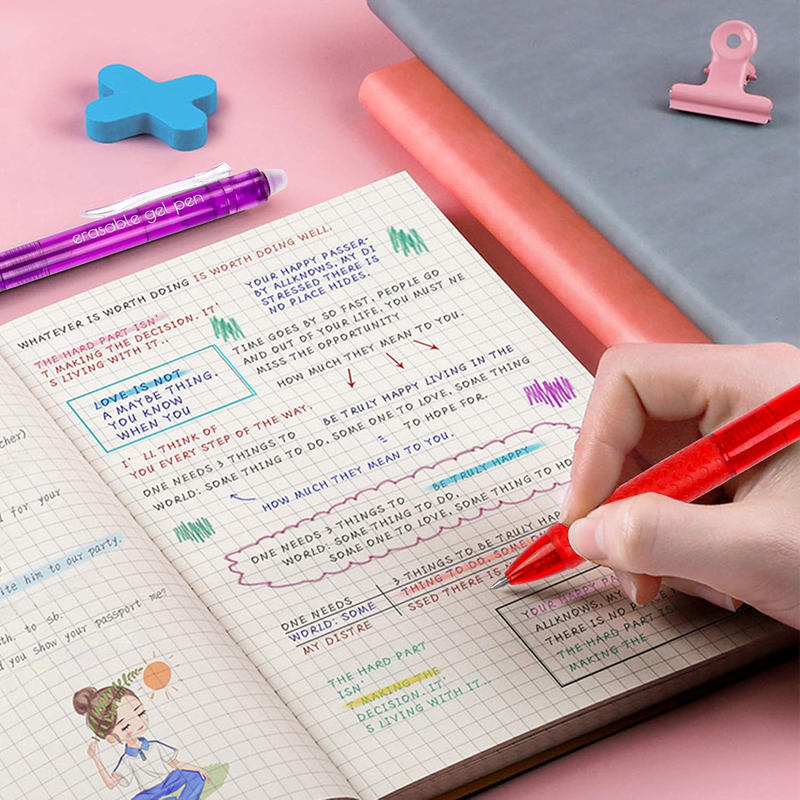 erasable gel pen
WHATEVER IS WORTH DOING IS WORTH DOING WELL.
THE HARD PART ISN'
T MAKING THE DECISION. IT'
S LIVING WITH IT..
YOUR HAPPY PASSER-
BY ALLKNOWS, MY DI
STRESSED THERE IS
NO PLACE HIDES.
LOVE IS NOT
A MAYBE THING.
YOU KNOW
WHEN YOU
TIME GOES BY SO FAST, PEOPLE GO
AND OUT OF YOUR LIFE. YOU MUST NE
MISS THE OPPORTUNITY
HOW MUCH THEY MEAN TO YOU.
I' LL THINK OF
YOU EVERY STEP OF THE WAY.
BE TRULY HAPPY LIVING IN THE
ONE NEEDS 3 THINGS TO
WORLD: SOME THING TO DO, SOME ONE TO LOVE, SOME THING
TO HOPE FOR.
HOW MUCH THEY MEAN TO YOU.
BE TRULY HAPPY
ONE NEEDS 3 THINGS TO
WORLD: SOME THING TO DO,
SOME ONE TO LOVE, SOME THING TO HO
3 THINGS TO BE TRULY HAP
ONE NEEDS
THING TO DO, SOME ON
WORLD: SOME
SSED THERE IS
MY DISTRE
YOUR HAPPY PA
ALLKNOWS, MY
THERE IS NO PLACE
THE HARD PART ISN
MAKING THE
THE HARD PART
ISN'
T MAKING THE
DECISION. IT'
S LIVING WITH IT..
cher)
d for your
ite him to our party.
th. to sb.
d you show your passport me?